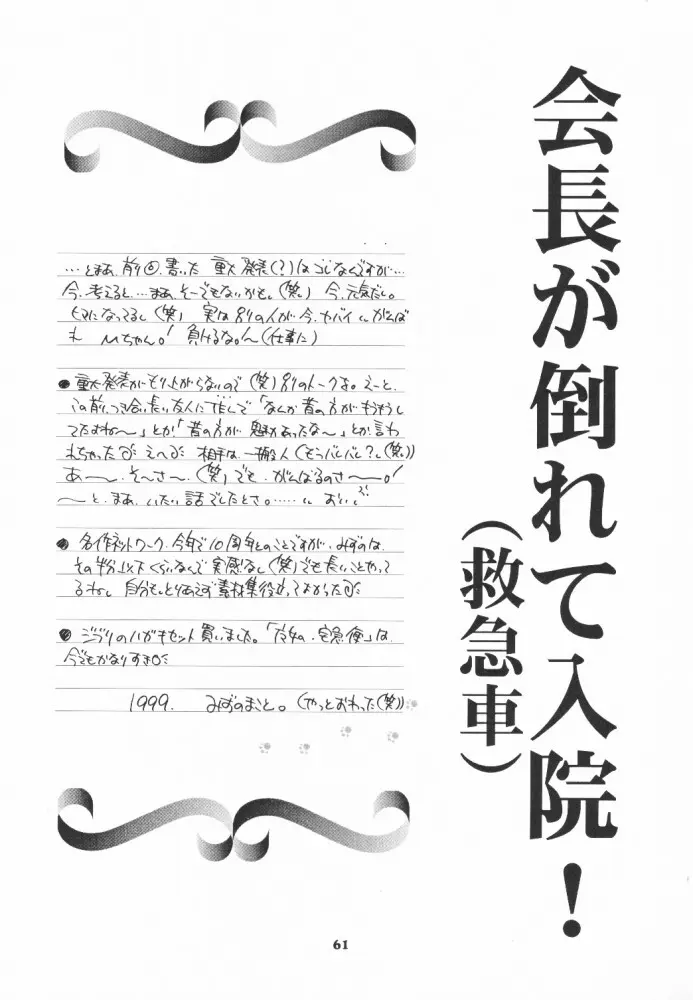 会長が倒れて入院！
（救急車）
…とまぁ、前回書いた 重大発表(?)はコレなんですが…
今、考えると…まぁ、そーでもないかも。(笑) 今、元気だし。
ヒマになってるし(笑) 実は別の人が今、ヤバイ がんば
れ Mちゃん。! 負けるな。!〜(仕事に)
●重大発表がもり上がらないので(笑)別のトークを。えーと、
この前、つき合い長い友人に 「なんか昔の方がもうもうし
てたよね〜」とか「昔の方が魅力あったな〜」とか言わ
れちゃった えへ 相手は、一般人(もうバレバレ?。(笑))
あ〜、そーさー、(笑)でも、がんばるのさ〜。!
〜と、まあ、いたい話でしたとさ。…… おいい
●名作ネットワーク、今年で10周年とのことですが、みずのは、
その半分以下くらいなんで実感なし(笑)でも長いことやって
るわね。自分も、とりあえず素材集役立ってよかった
●ジブリのハガキセット買いました。「魔女の宅急便」は、
今でもかなりすき
1999. みずのまこと。(やっとおわった(笑))
61